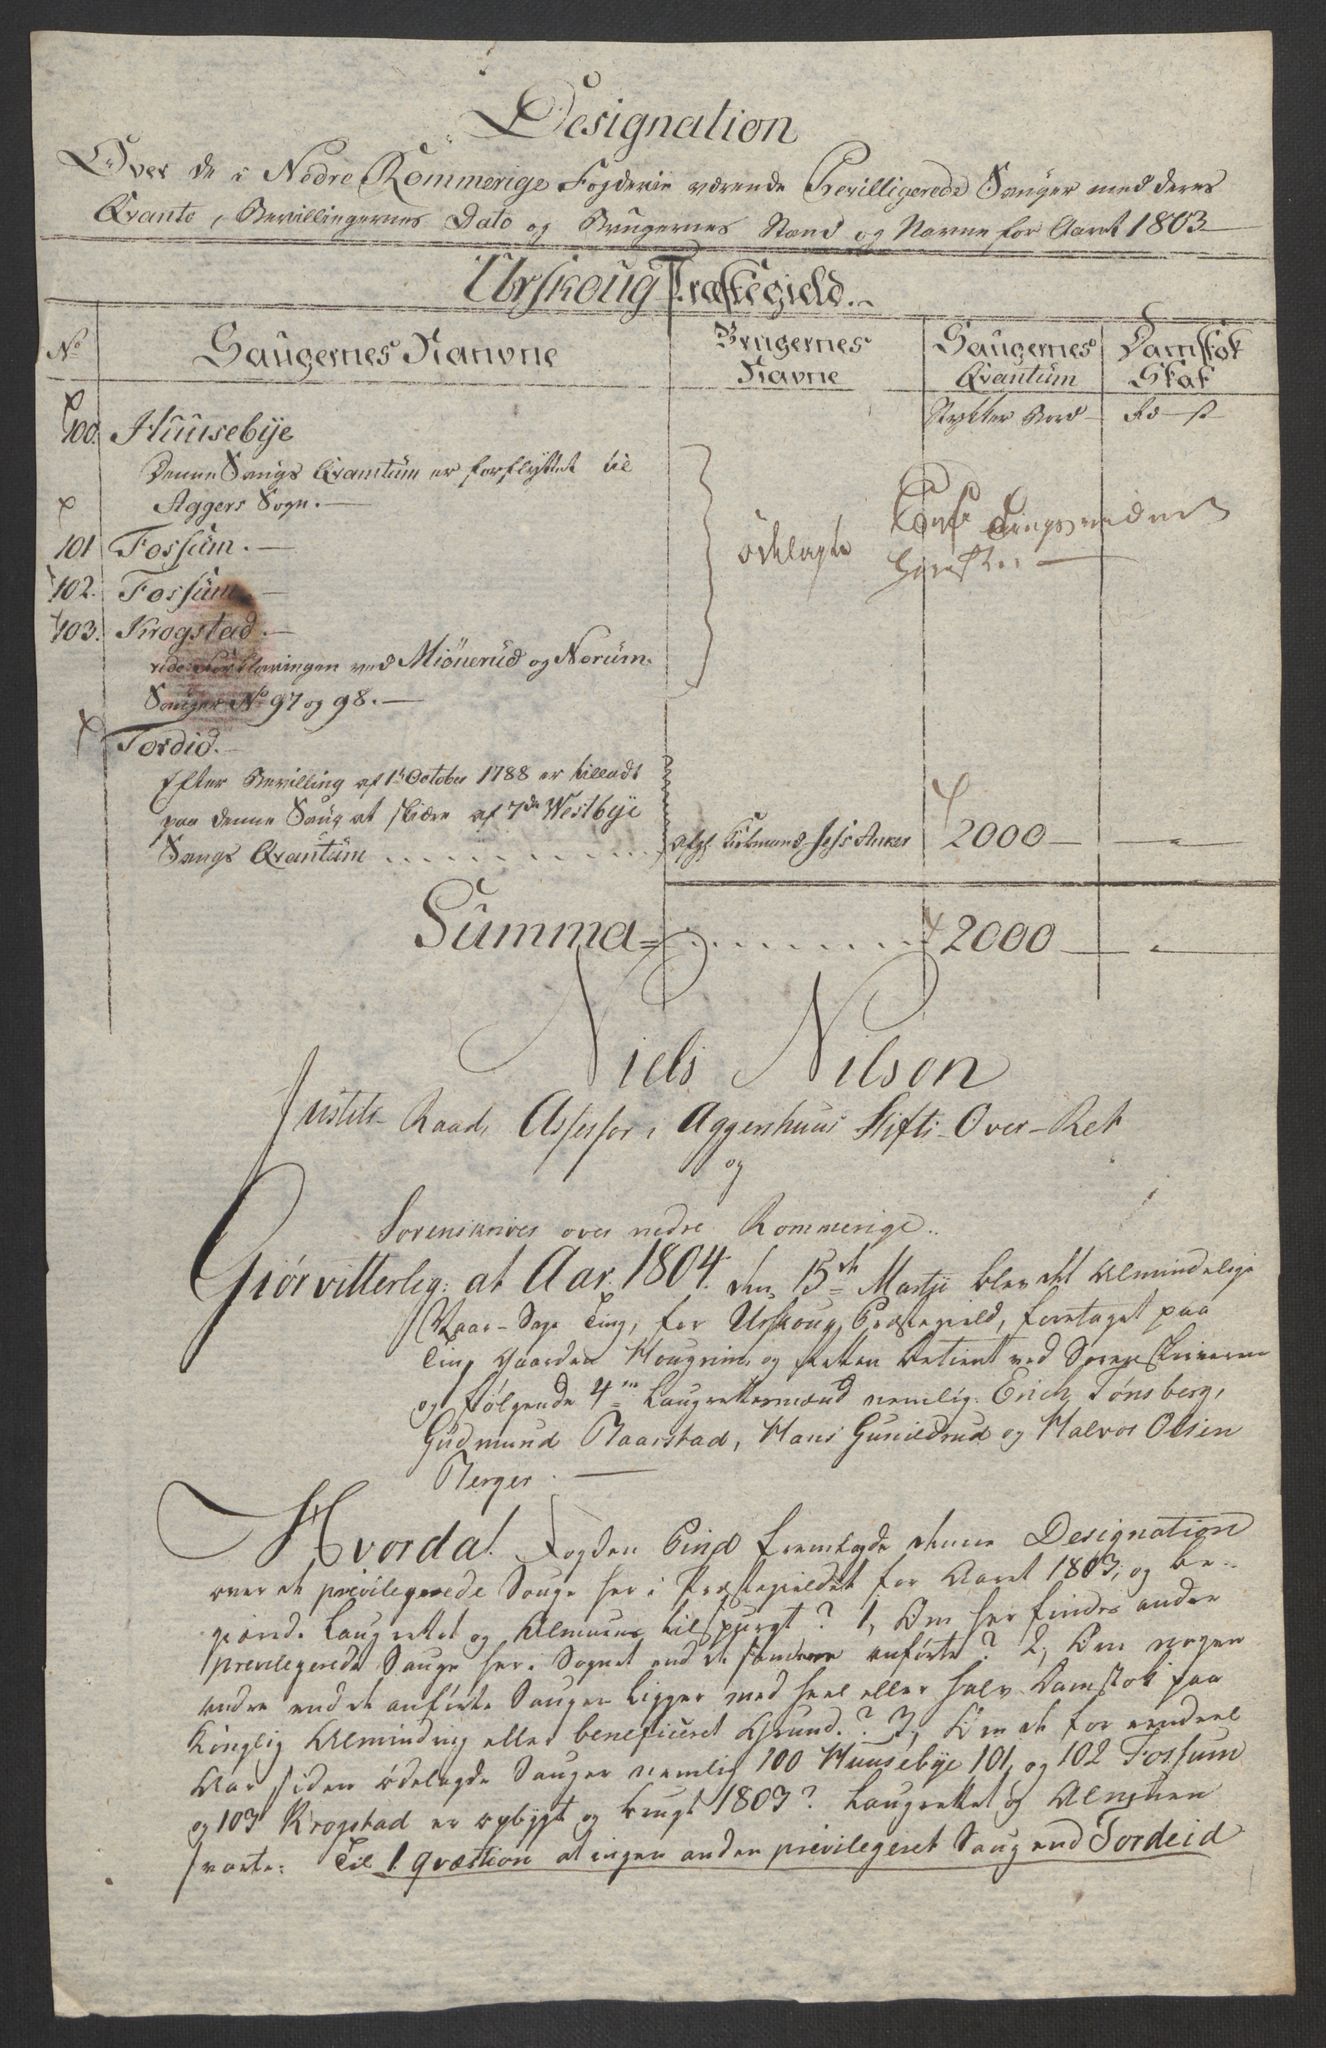 Designation
Over de i Nedre Rommerige Fogderie værende Previlligerede Sauger med deres
Qvanta, Bevillingernes Dato og Brugernes Stand og Navne for Aaret 1803
Urskoug Præstegield.
No
Saugernes Navne
Brugernes
Navne
Saugernes
Qvantum
Damstok
Skat
Stykker Bord
Rd s
100. Huusebÿe
Denne Saugs Qvantum er forflyttet til
Aggers Sogn.
101 Fossum.
102. Fossum
103. Krogstad.
ødelagte
vide Forklaringen ved Miönerud og Norum
Sauger No 97 og 98.
Tordid.
Efter Bevilling af 1te October 1788 er tilladt
paa denne Saug at skiære af 7de Westbÿe
Saugs Qvantum
Jess Anker 2000
Summa 2000
Niels Nilson
Justits Raad, Assessor i Aggerhuus Stifts-Over-Ret
og
Sorenskriver over nedre Rommerige.
Giör vitterlig: at Aar 1804 den 15de Martji blev det Almindelige
Vaar-Sage Ting, for Urskoug Præstegield, foretaget paa
Ting Gaarden Hougrim og Retten betient ved Sorenskriveren
og følgende 4re Laugrettesmænd nemlig: Erich Tønsberg,
Gudmund Raarstad, Hans Gunildrud og Halvor Olsen
Berger.
Hvorda! Fogden Pind fremlagde denne Designation
over de previlegerede Sauge her i Præstegieldet for Aaret 1803, og be-
giærede Laugrettet og Almuens tilspurgt? 1, Om her findes andre
previlegerede Sauge her i Sognet end de anførte? 2, Om nogen
andre end de anførte Sauger ligger med heel eller halv Damstok paa
Konglig Alminding eller beneficeret Grund.? 3, Om de for eendeel
Aar siden ødelagde Sauger nemlig 100 Huusebÿe 101, og 102 Fossum
og 103 Krogstad er opbygt og brugt 1803? Laugrettet og Almuen
svarte: Til 1 qvæstion at ingen anden previlegeret Saug end Tordeid